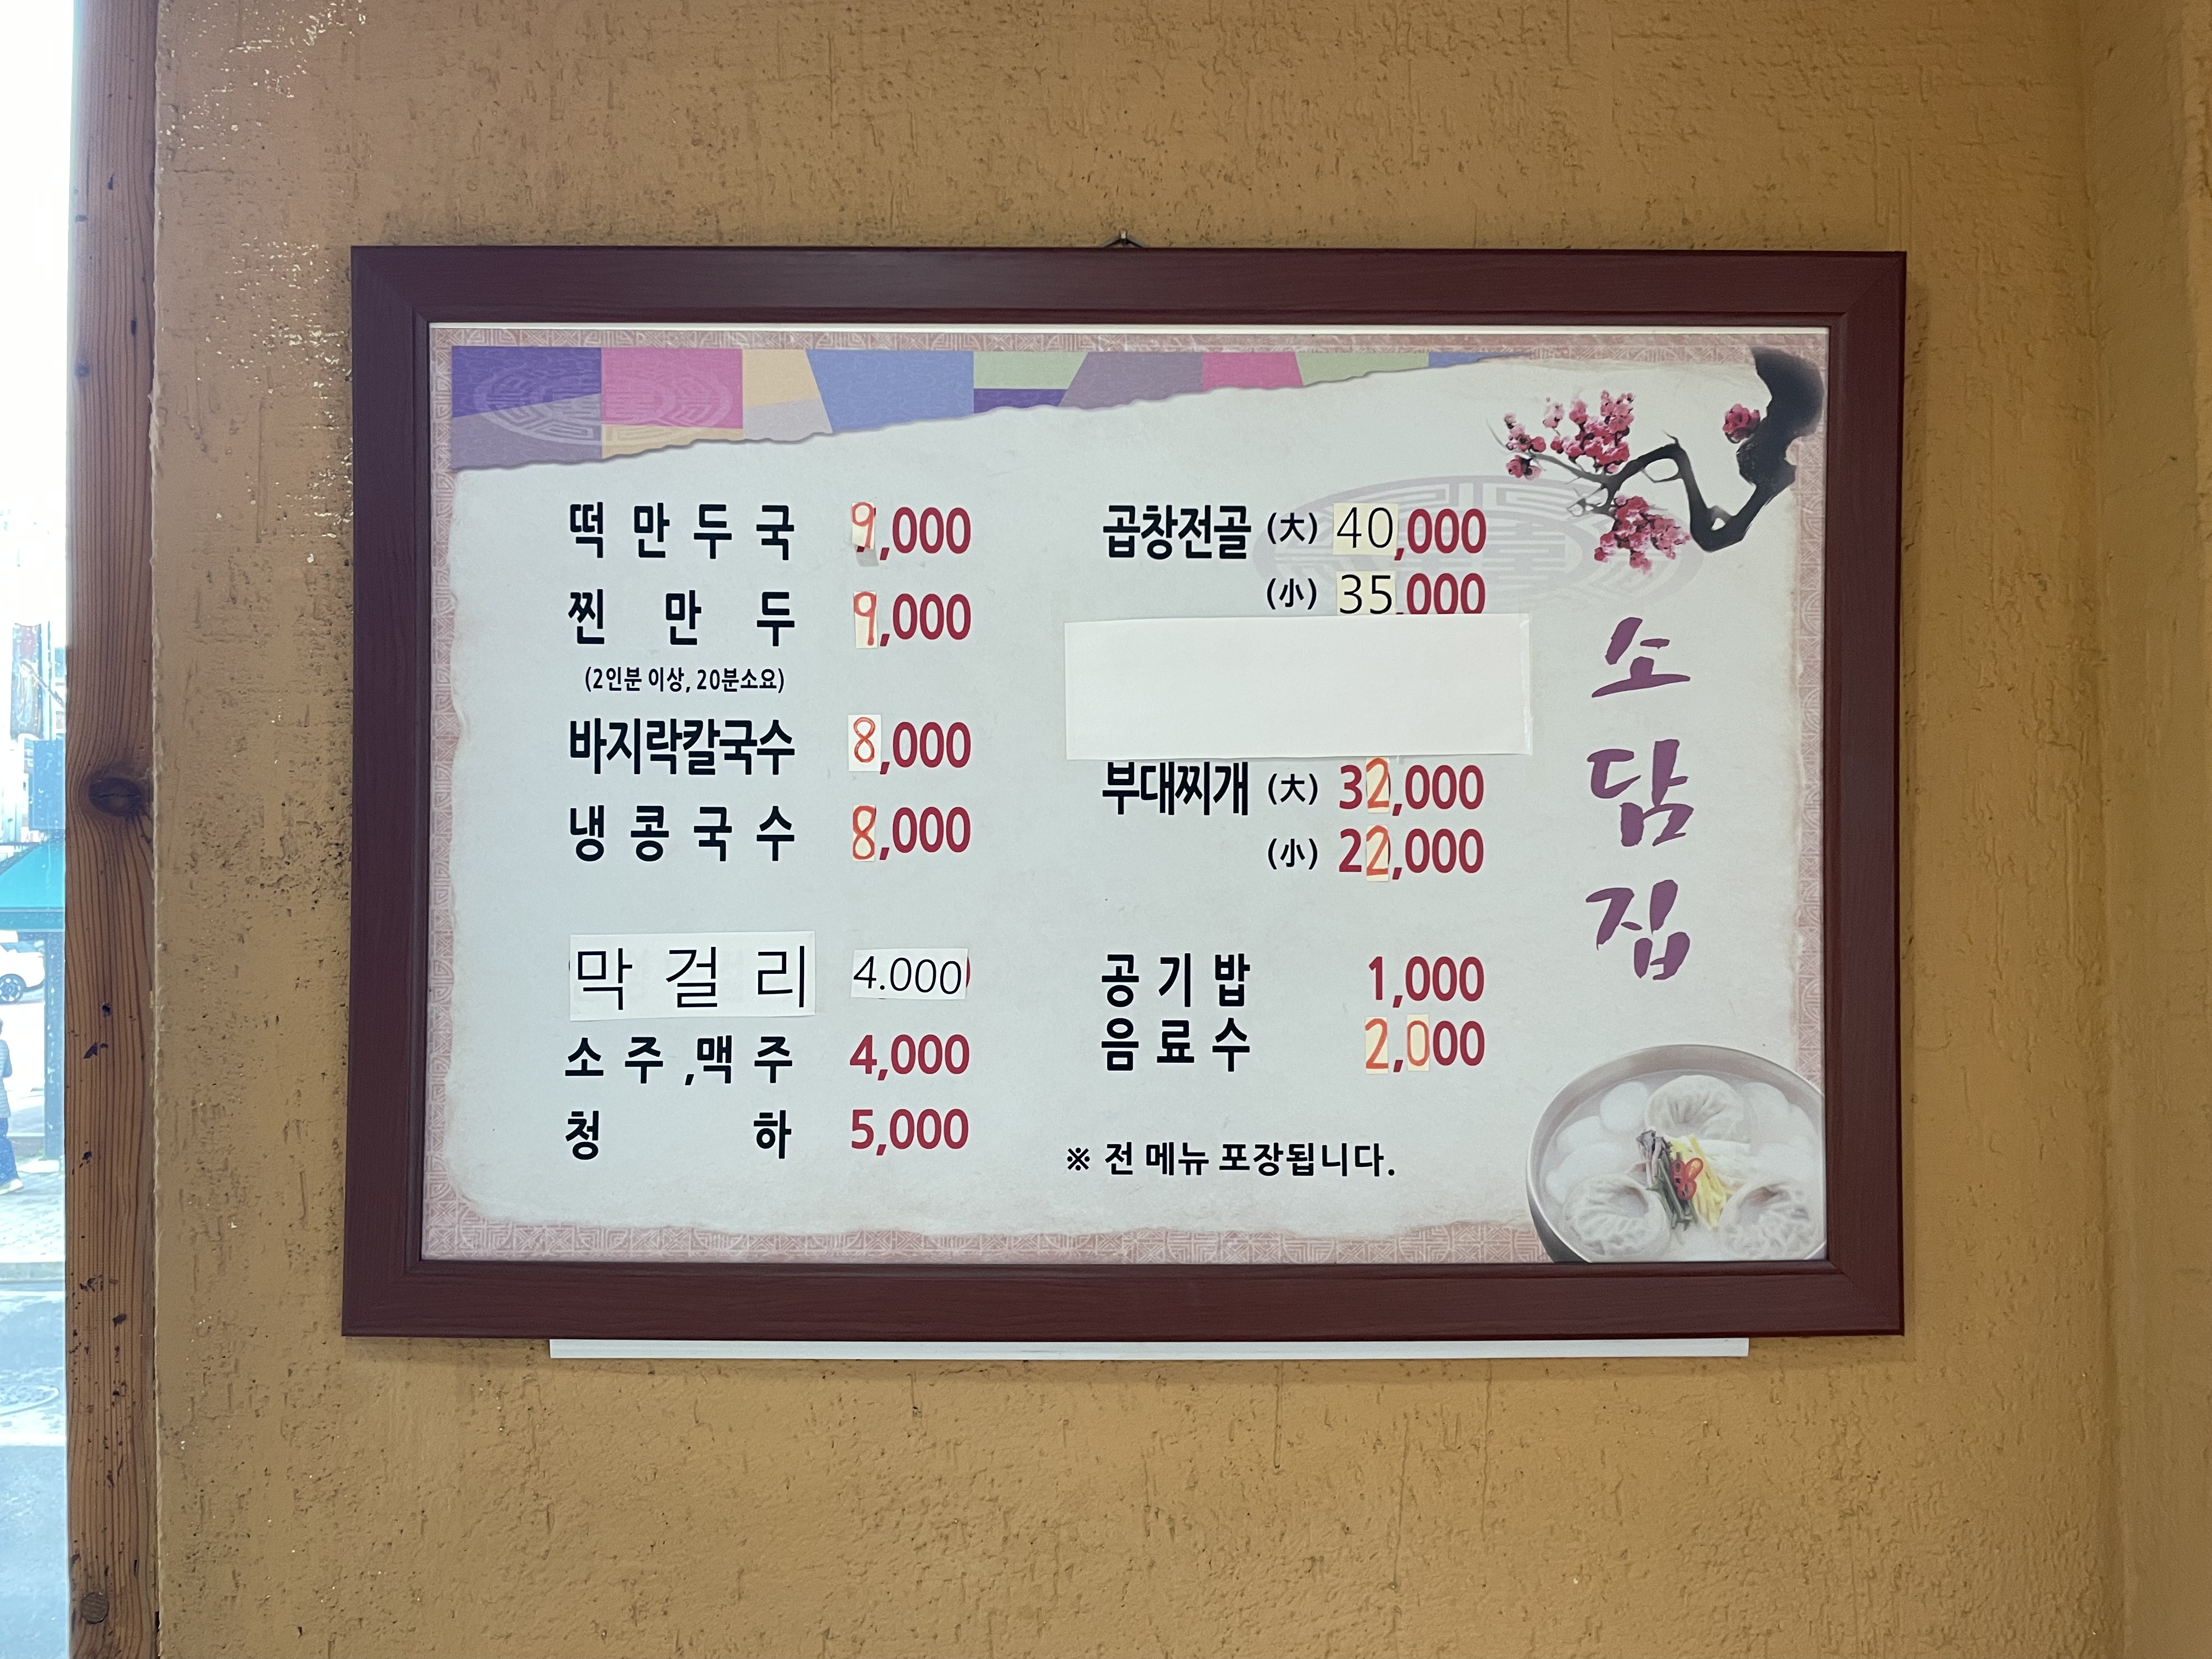 떡만두국 9,000
찐만두 9,000
(2인분 이상, 20분소요)
바지락칼국수 8,000
냉콩국수 8,000
막걸리 4.000
소주,맥주 4,000
청하 5,000
곱창전골 (大) 40,000
(小) 35,000
부대찌개 (大) 32,000
(小) 22,000
공기밥 1,000
음료수 2,000
※ 전 메뉴 포장됩니다.
소담집